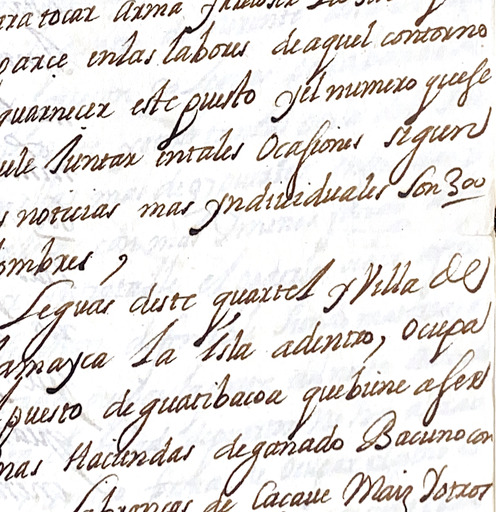 para tocar Arma
parce en las labores de aquel contorno
guarnecer este puesto y el numero que se
suele Juntar en tales Ocasiones segun
s noticias mas yndividuales son 300
ombres,
Leguas deste quartel y Villa de
Jamayca la Isla adentro, ocupa
puesto de guatibacoa que biene a ser
nas Haciendas de ganado Bacuno con
Labranças de Cacaue Maiz Y otros